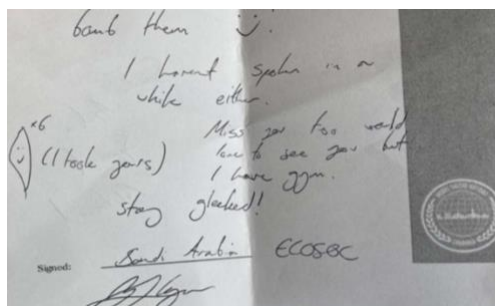 bomb them :).
I havent spoken in a
while either.
x6
Miss you too would
(I took yours) love to see you but
I have gym.
stay gleeked!
Signed: Saudi Arabia ECOSOC